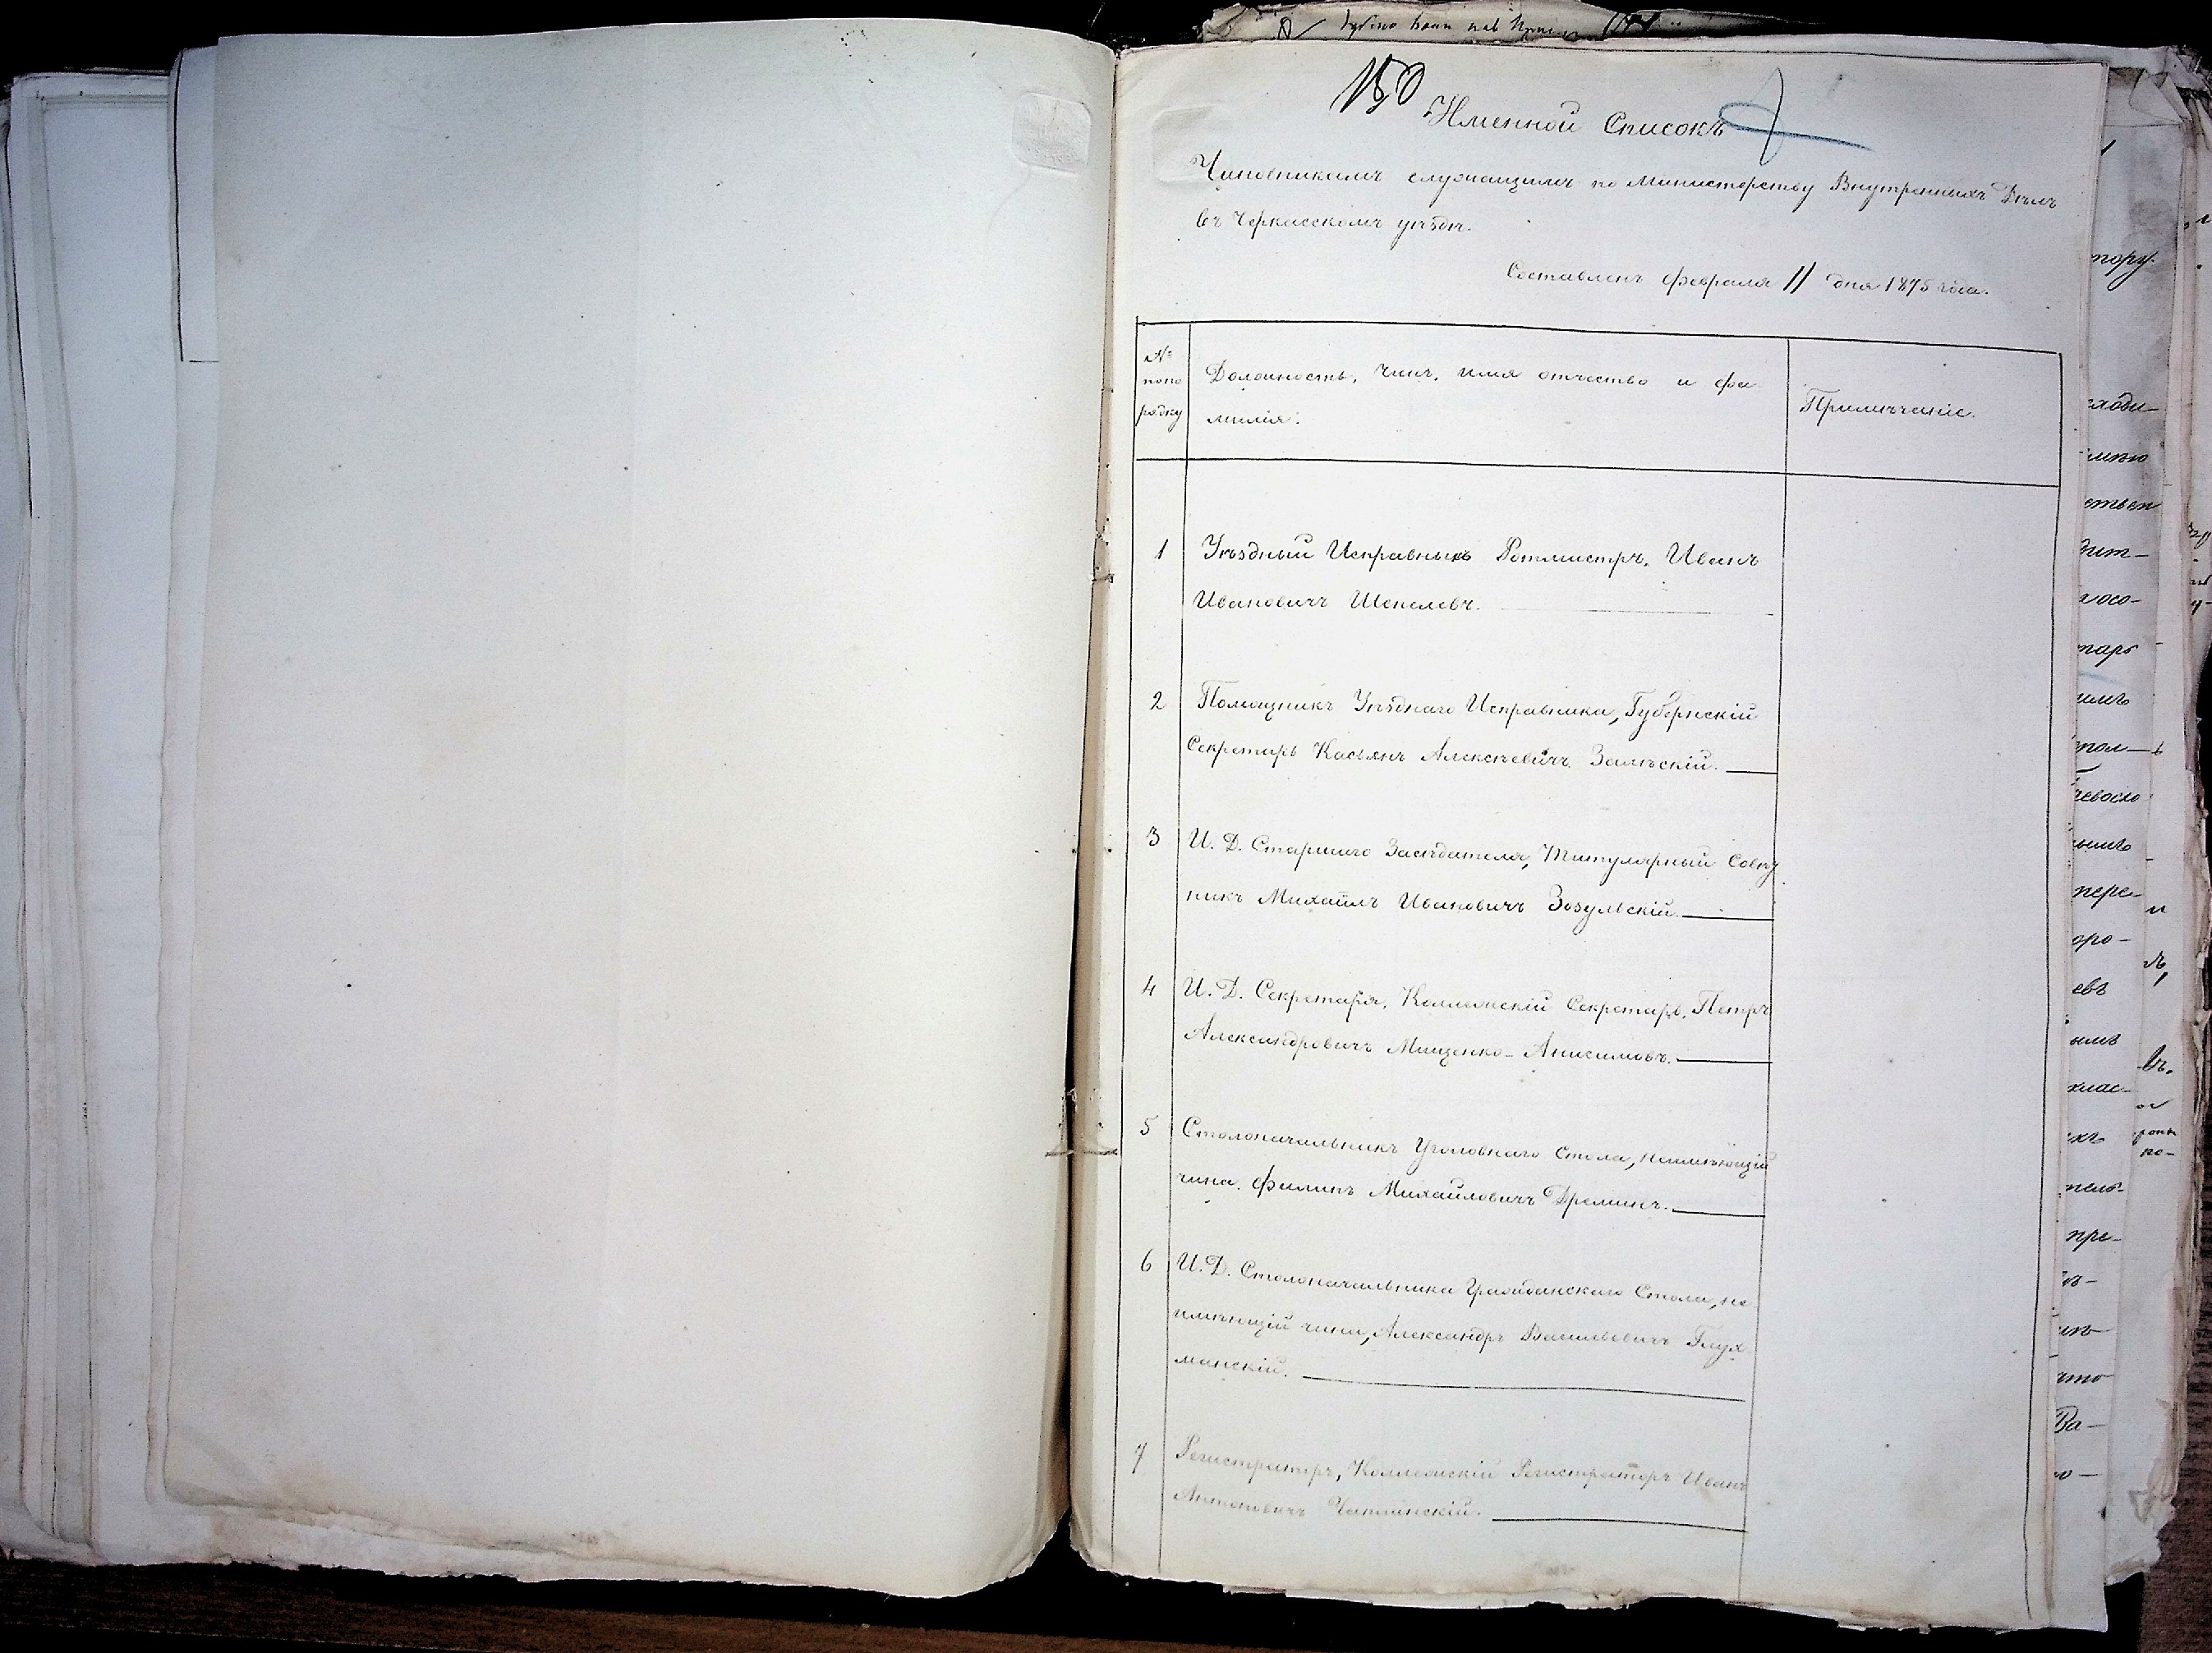 150
Именной Списокъ
Чиновникамъ служащимъ по Министерству Внутреннихъ Дѣлъ
въ Черкасскомъ уѣздѣ.
Составленъ февраля 11 дня 1875 года.
№
по по
рядку
Должность, чинъ, имя отчество и фа
милія.
Примѣчаніе.
1
Уѣздный Исправникъ Ротмистръ, Иванъ
Ивановичъ Шепелевъ.
2
Помощникъ Уѣзднаго Исправника, Губернскій
Секретарь Касьянъ Алексѣевичъ Залѣскій.
3
И. Д. Старшаго Засѣдателя, Титулярный Совѣт
никъ Михаилъ Ивановичъ Зозульскій.
4
И. Д. Секретаря, Коллежскій Секретарь, Петръ
Александровичъ Мищенко-Анисимовъ.
5
Столоначальникъ Уголовнаго Стола, неимѣющій
чина, Филипъ Михайловичъ Дреминъ.
6
И. Д. Столоначальника Гражданскаго Стола, не
имѣющій чина, Александръ Васильевичъ Глух
манскій.
7
Регистраторъ, Коллежскій Регистраторъ Иванъ
Антоновичъ